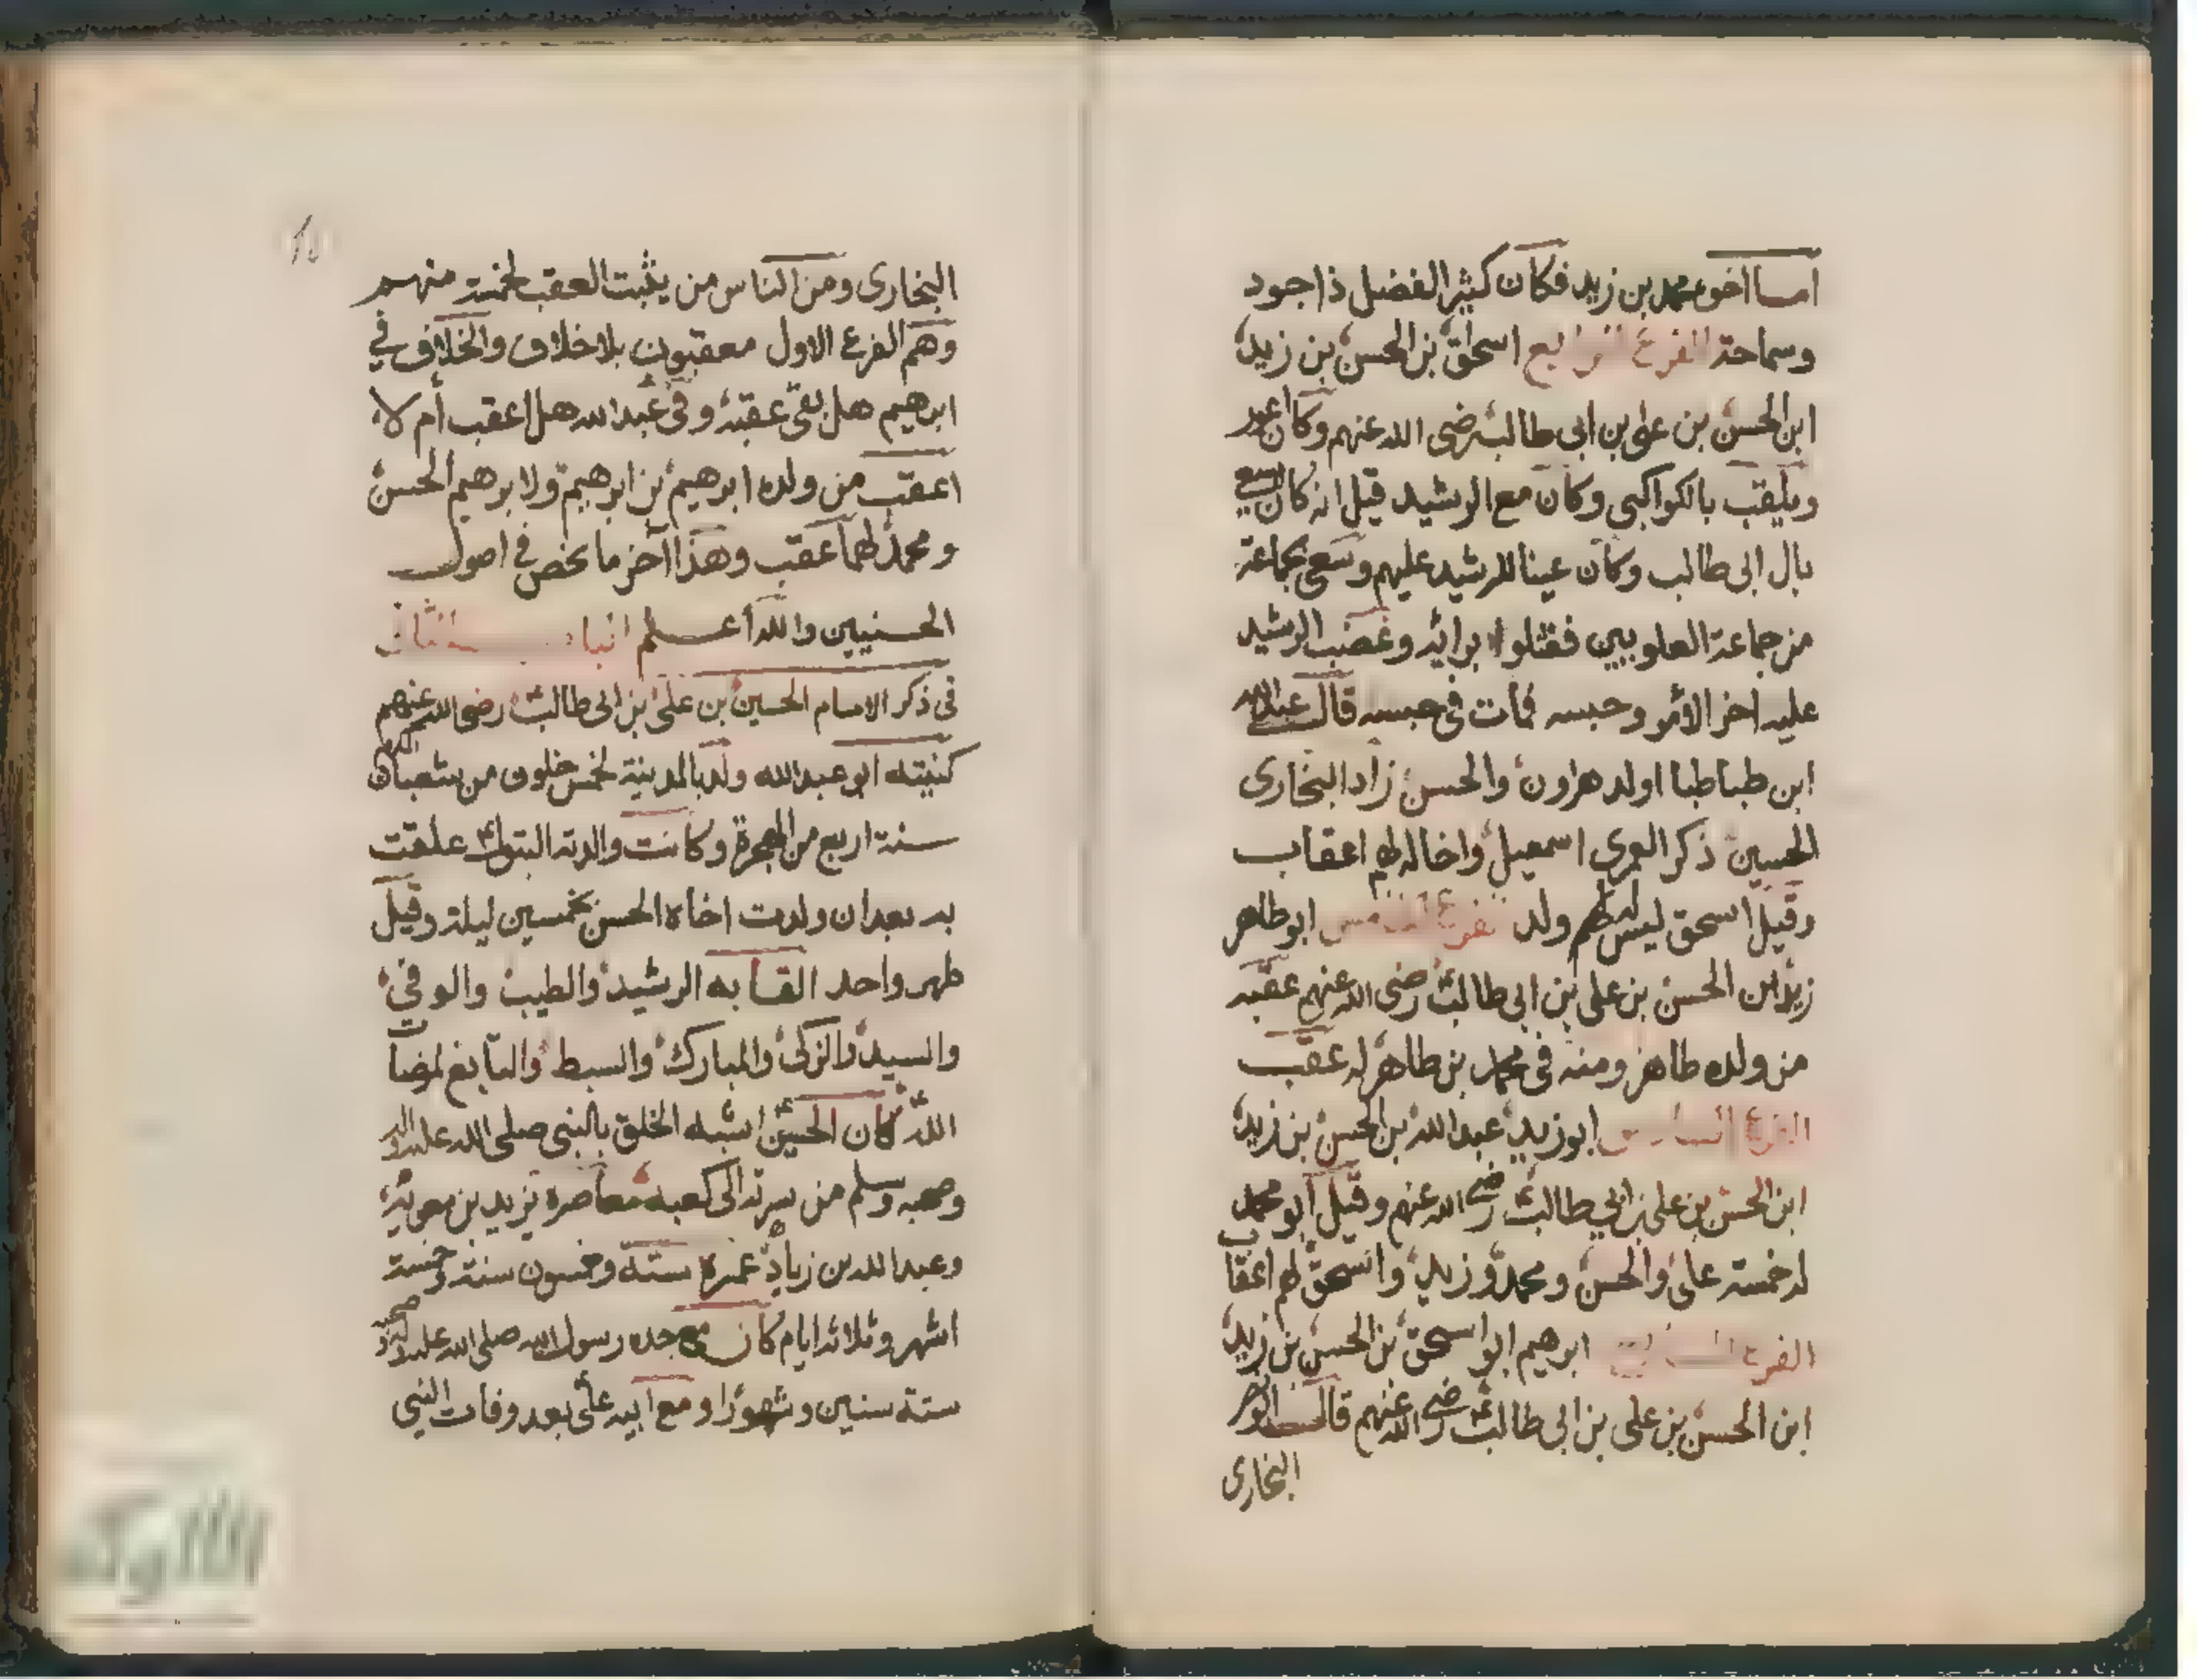 اما اخوه محمد بن زيد فكان كثير الفضل ذا جود
وسماحة الفرع الرابع اسحاق بن الحسن بن زيد
ابن الحسن بن على بن ابى طالب رضى الله عنهم وكان اعور
ويلقب بالكواكبى وكان مع الرشيد قيل انه كان يسعى
بال ابى طالب وكان عينا للرشيد عليهم وسعى بجماعة
من جماعة العلويين فقتلوا برائه وغضب الرشيد
عليه اخر الامر وحبسه فمات فى حبسه قال عبد الله
ابن طباطبا اولد هرون والحسن زاد البخارى
الحسين ذكر العمرى اسمعيل واخا له لهم اعقاب
وقيل اسحق ليس لهم ولد الفرع الخامس ابو طاهر
زيد ابن الحسن بن على بن ابى طالب رضى الله عنهم عقبه
من ولده طاهر ومنه فى محمد بن طاهر له عقب
الفرع السادس ابو زيد عبد الله بن الحسن بن زيد
ابن الحسن بن على بن ابي طالب رضى الله عنهم وقيل ابو محمد
له خمسة على والحسن ومحمد وزيد واسحق لهم اعقاب
الفرع السابع ابرهيم ابو اسحق بن الحسن بن زيد
ابن الحسن بن على بن ابى طالب رضى الله عنهم قال ابو نصر
البخارى
البخارى ومن الناس من يثبت العقب لخمسة منهم
وهم الفرع الاول معقبون بلا خلاف والخلاف في
ابرهيم هل بقى عقبه وفى عبد الله هل اعقب أم لا
اعقب من ولده ابرهيم بن ابرهيم ولابرهيم الحسن
ومحمد لهما عقب وهذا آخر ما يخص في اصول
الحسنيين والله أعلم الباب الثانى
فى ذكر الامام الحسين بن على بن ابى طالب رضى الله عنهم
كنيته ابو عبد الله ولد بالمدينة لخمس خلون من شعبان
سنة اربع من الهجرة وكانت والدته البتول علقت
به بعد ان ولدت اخاه الحسن بخمسين ليلة وقيل
طهر واحد القابه الرشيد والطيب والوفى
والسيد والزكى والمبارك والسبط والتابع لمرضات
الله كان الحسين اشبه الخلق بالنبى صلى الله عليه واله
وصحبه وسلم من سرته الى كعبه معاصره يزيد بن معوية
وعبد الله بن زياد عمره ستة وخمسون سنة وخمسة
اشهر وثلاثة ايام كان مع جده رسول الله صلى الله عليه
ستة سنين وشهورا ومع ابيه على بعد وفات النبى
الألوكة